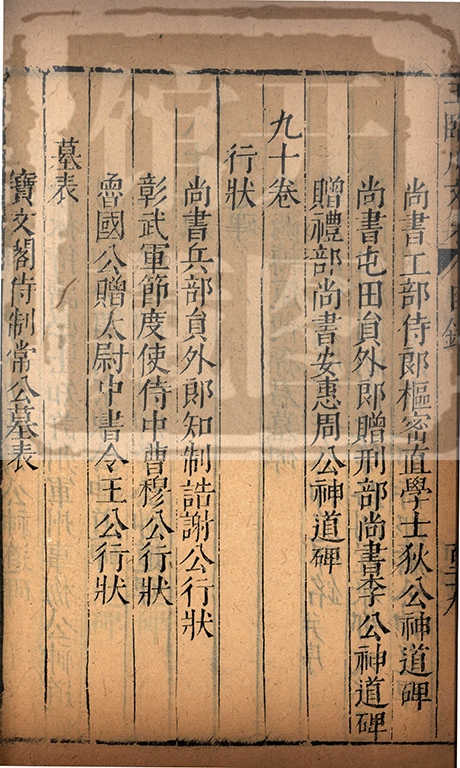 尚書工部侍郎樞密直學士狄公神道碑
尚書屯田員外郎贈刑部尚書李公神道碑
贈禮部尚書安惠周公神道碑
九十卷
行狀
尚書兵部員外郎知制誥謝公行狀
彰武軍節度使侍中曹穆公行狀
魯國公贈太尉中書令王公行狀
墓表
寶文閣待制常公墓表